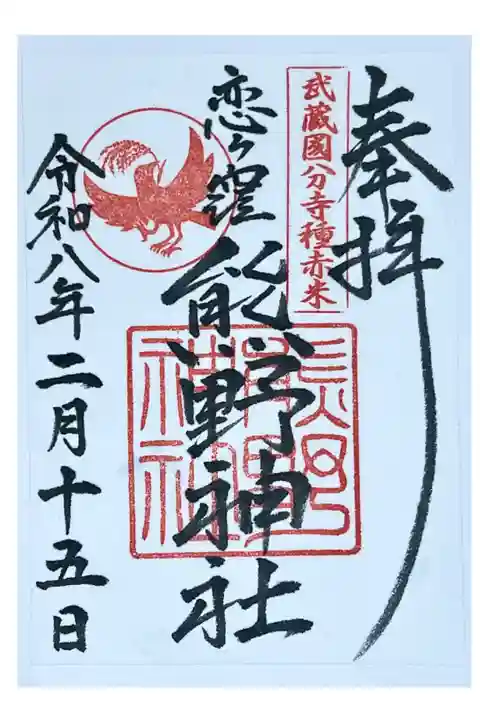 奉拝
武蔵國分寺種赤米
恋ヶ窪
熊野神社
熊野
神社
令和八年二月十五日